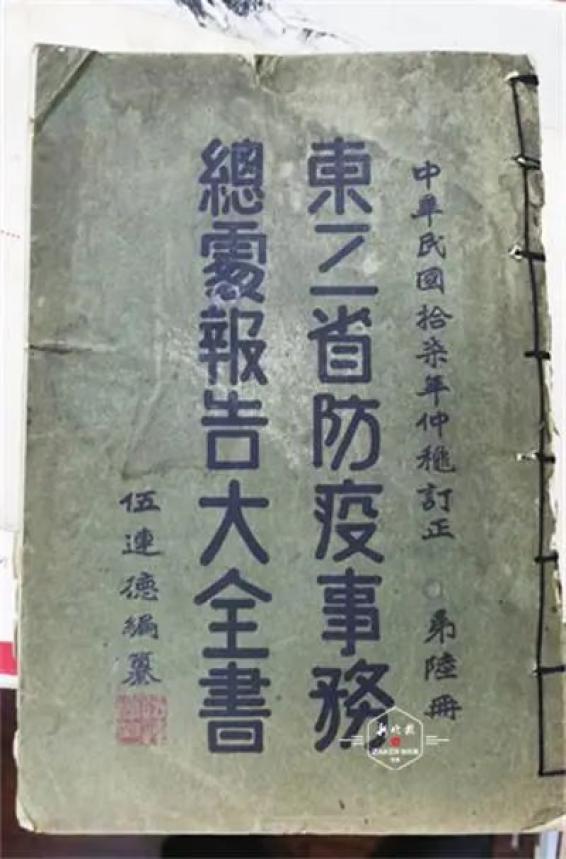 中華民國拾柒年仲穐訂正 弟陸冊
東三省防疫事務
總處報告大全書
伍連德編纂
新晚报